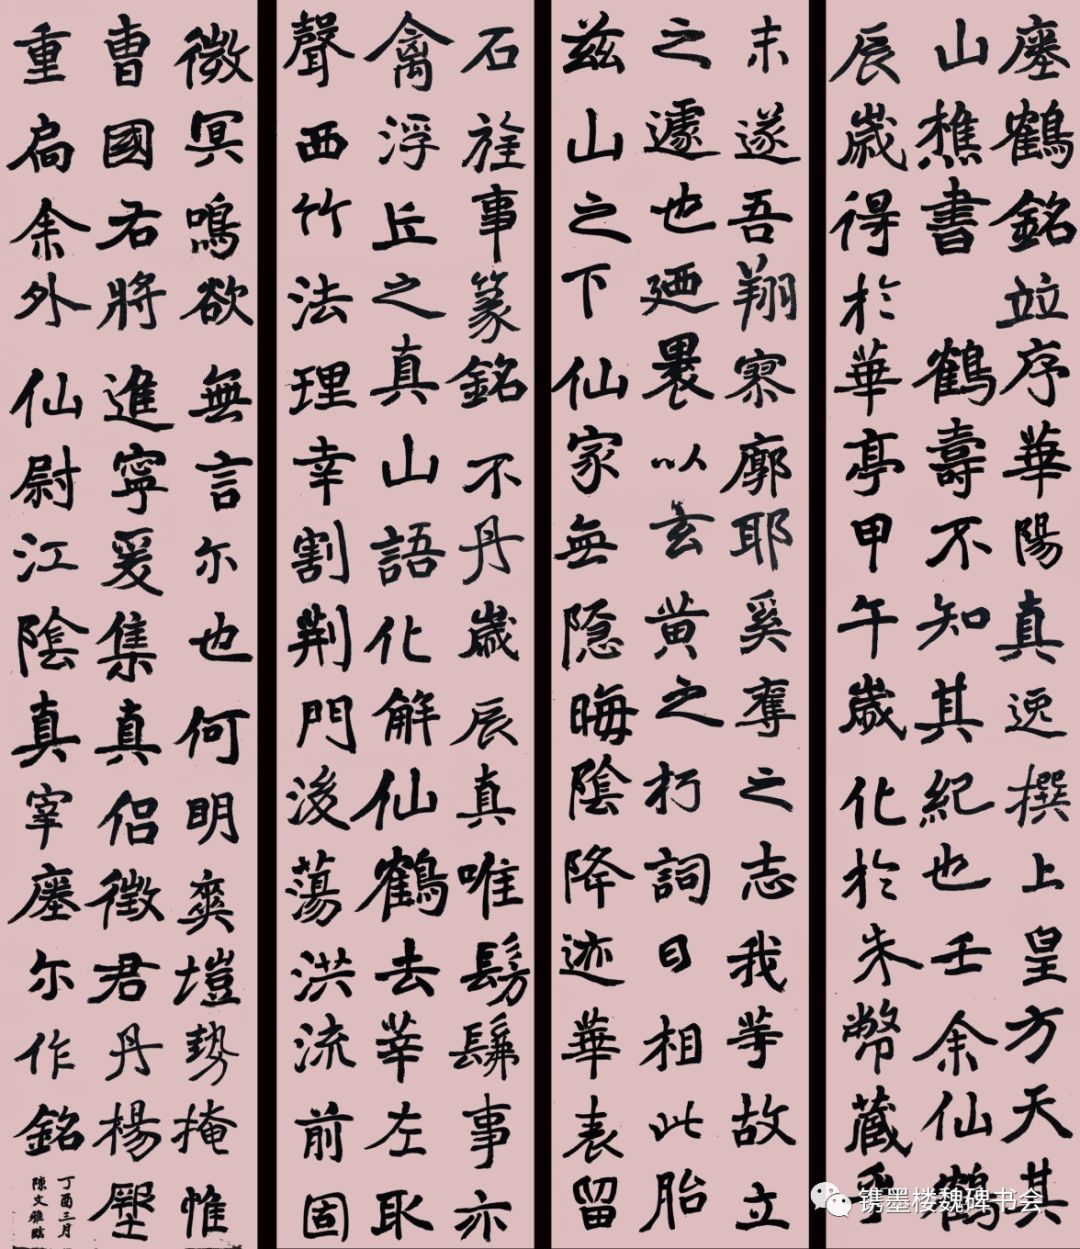 瘞鶴銘竝序華陽真逸撰上皇方天其
山樵書 鶴壽不知其紀也壬余仙鶴
辰歲得於華亭甲午歲化於朱幣藏乎
未遂吾翔寥廓耶奚奪之志我等故立
之遽也廼裹以玄黄之朽詞曰相此胎
兹山之下仙家無隱晦陰降迹華表留
石旌事篆銘不丹歲辰真唯髣髴事亦
禽浮丘之真山語化解仙鶴去莘左取
聲西竹法理幸割荆門浚蕩洪流前固
微冥鳴欲無言尔也何明爽塏勢掩惟
曹國右將進寧爰集真侣徵君丹楊壓
重扃余外仙尉江陰真宰瘞尔作銘
丁酉三月
陳文雅臨
镌墨楼魏碑书会